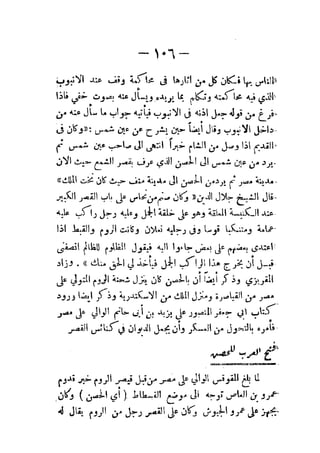 — ١٠٦ —
الناس بها فكان كل من اثارها في محاكمة وقف عند الانبوب
الذي فيه محاكمته وتكلم بما يريده ويسأل عنه بصوت خفي فاذا
فرغ من قوله جعل اذنه في الانبوب فيأتيه جواب ما سأل عنه من
داخل الانبوب وقال أيضاً حين يشرح عن عين شمس : « وكان في
القديم اذا وصل من الشام خبراً انتهى الى صاحب عين شمس ثم
يرد من عين شمس الى الحصن الذي عرف بقصر الشمع حيث الآن
مدينة مصر ثم يرد من الحصن الى مدينة منف حيث كان تخت الملك »
قال الشيخ جلال الدين « وكان صنم من نحاس على باب القصر الكبير
عند الكنيسة المعلقة وهو على خلقة الجمل وعليه رجل راكب عليه
عمامة ومتنكباً قوسا وفى رجليه نعلان وكانت الروم والقبط اذا
اعتدى بعضهم على بعض جاءوا اليه فيقول المظلوم للظالم انصفنى
قبل أن يخرج هذا الراكب الجمل فيأخذ لي الحق منك » . وزاد
المقريزى وذكر أيضاً أن بالحصن كان ينزل شحنة الروم المتولي على
مصر من القياصرة ومنزل الملك من الاسكندرية وذكر ايضا ورود
كتاب ابي جعفر المنصور على يزيد بن أبى حاتم الوالي على مصر
فأمره بالتحول من العسكر وأن يجعل الديوان في كنائس القصر
فتح العرب للحصن
لما بلغ المقوقس الوالي على مصر من قبل قيصر الروم خبر قدوم
عمرو بن العاص توجه الى موضع الفسطاط ( أي الحصن ) وكان
يجهز على عمرو الجيوش وكان على القصر رجل من الروم يقال له